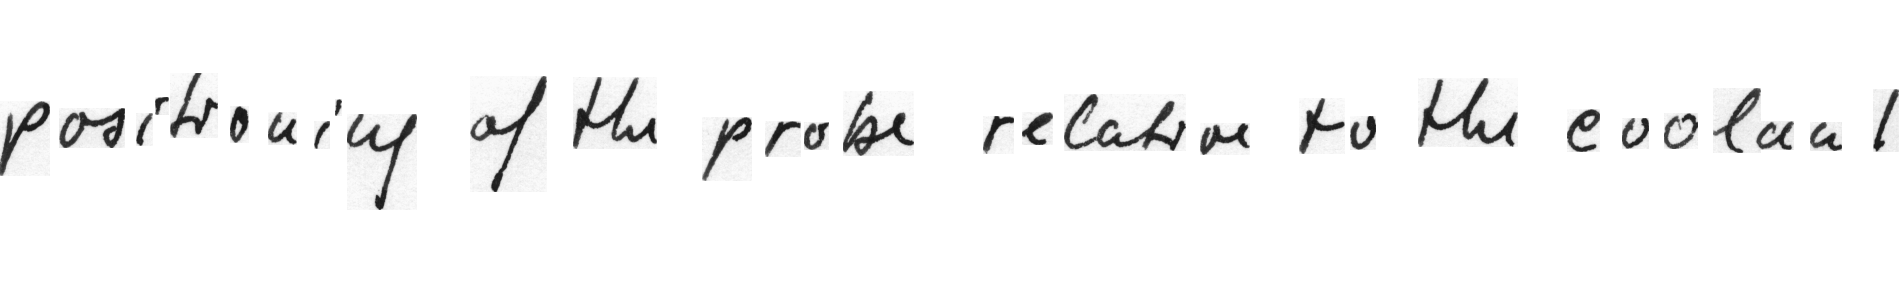 positioning of the probe relative to the coolant